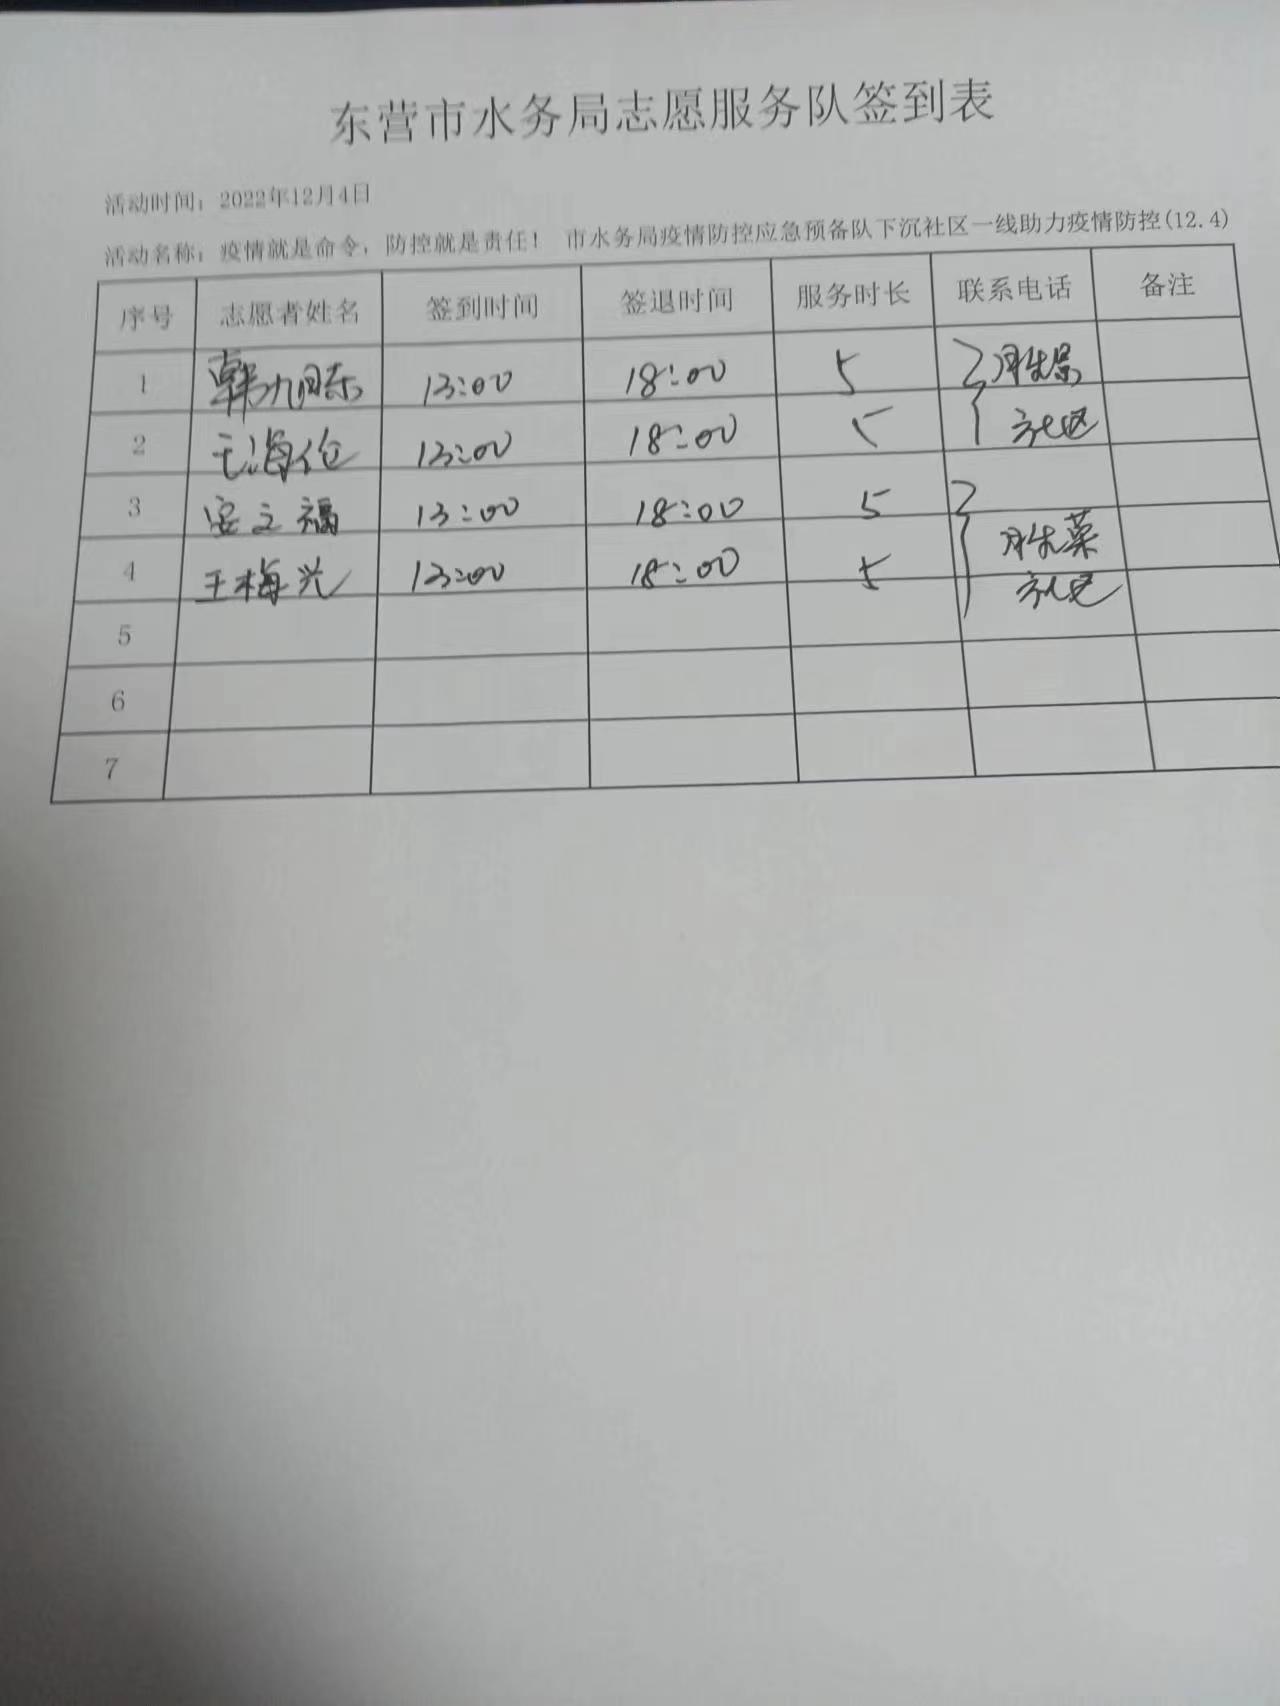 东营市水务局志愿服务队签到表
活动时间：2022年12月4日
活动名称：疫情就是命令，防控就是责任！ 市水务局疫情防控应急预备队下沉社区一线助力疫情防控(12.4)
序号 志愿者姓名 签到时间 签退时间 服务时长 联系电话 备注
1 韩旭东 13:00 18:00 5
2 王海伦 13:00 18:00 5 社区
3 安立福 13:00 18:00 5
4 王梅兴 13:00 18:00 5 社区
5
6
7